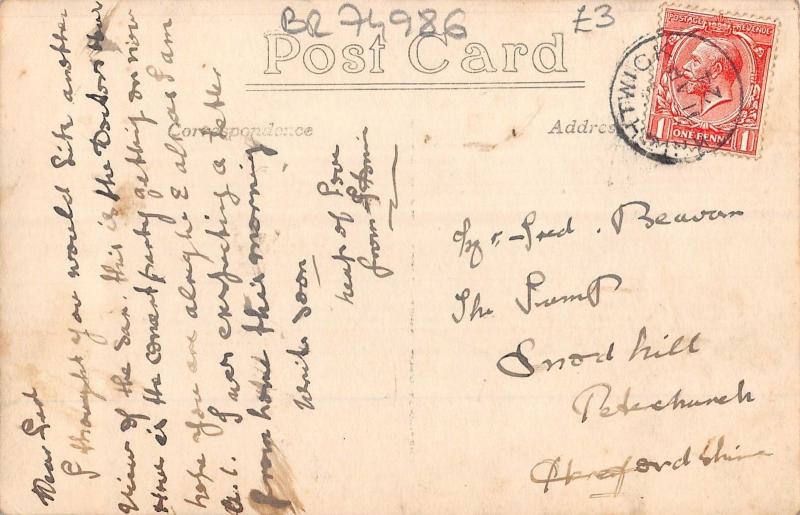 BR 74986
£3
Post Card
Correspondence
Address
POSTAGE REVENUE
1 ONE PENNY 1
Dear Fred
I thought you would like another
view of the San. this is the Doctors
Here is the concert party getting on now
hope you are alright E allso as I am
A.1. I was expecting a letter
from home this morning
Write soon
heap of Love
from
Mr Fred. Beavan
The Pump
Snod hill
Peterchurch
Herefordshire